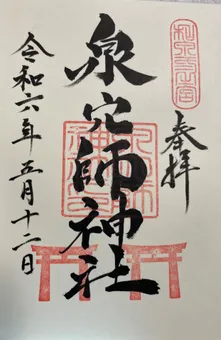 奉拝
和泉二宮
泉穴師神社
令和六年五月十二日